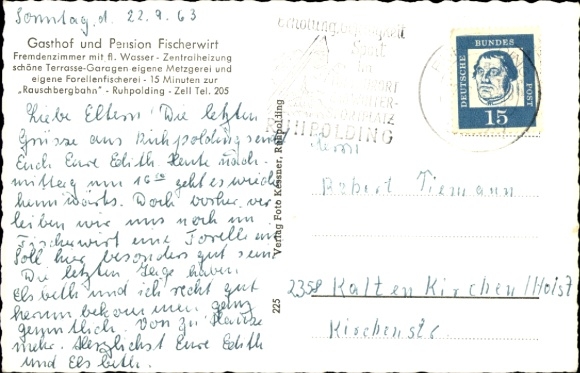 Sonntag, d. 22.9.63
Gasthof und Pension Fischerwirt
Fremdenzimmer mit fl. Wasser - Zentralheizung
schöne Terrasse-Garagen-eigene Metzgerei und
eigene Forellenfischerei - 15 Minuten zur
„Rauschbergbahn" - Ruhpolding - Zell Tel. 205
Liebe Eltern! Die letzten
Grüsse aus Ruhpolding senden
Euch Eure Edith. Heute nach-
mittag um 16 geht es wieder
heimwärts. Doch vorher ver
leiben wir uns noch im
Fischerwirt eine Forelle ein
Soll hier besonders gut sein
Die letzten Tage haben
Elsbeth und ich recht gut
herum bekommen, ganz
gemütlich. Von zu Hause
mehr. Herzlichst Eure Edith
und Elsbeth.
Verlag Foto Kessner, Ruhpolding
225
Erholung
Sport
RUHPOLDING
DEUTSCHE
BUNDES
POST
15
Robert Tiemann
2358 Kaltenkirchen/Holst
Kirchenstr.